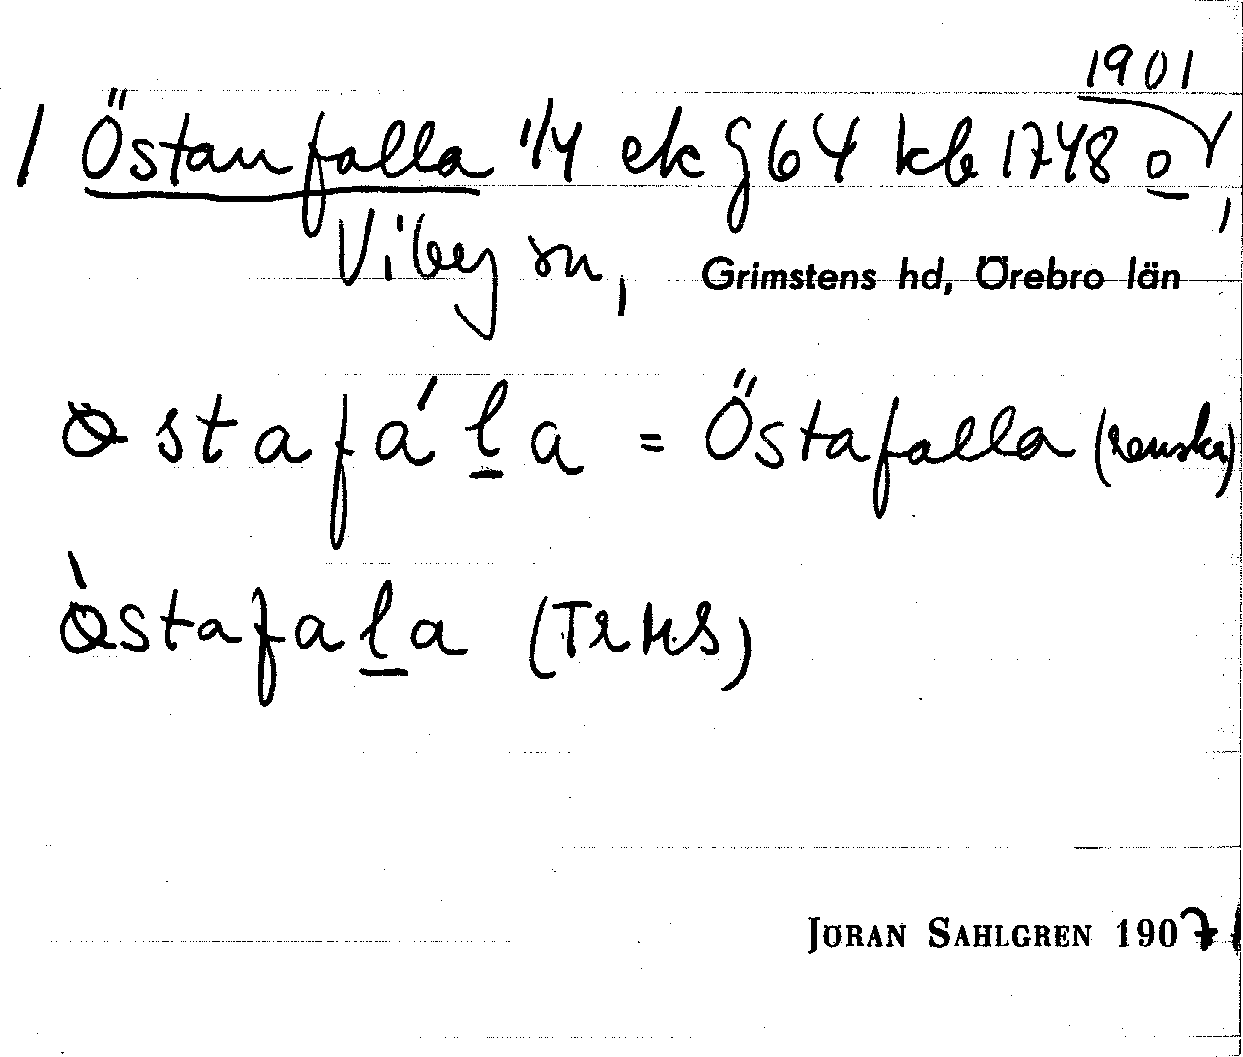 1901
1 Östanfalla 1/4 ek § 64 kb 1748 o,
Viby sn, Grimstens hd, Örebro län
ꝋstafáḻa = Östafalla (Lanska)
ꝋ̀stafaḻa (Tr KS)
JÖRAN SAHLGREN 1907